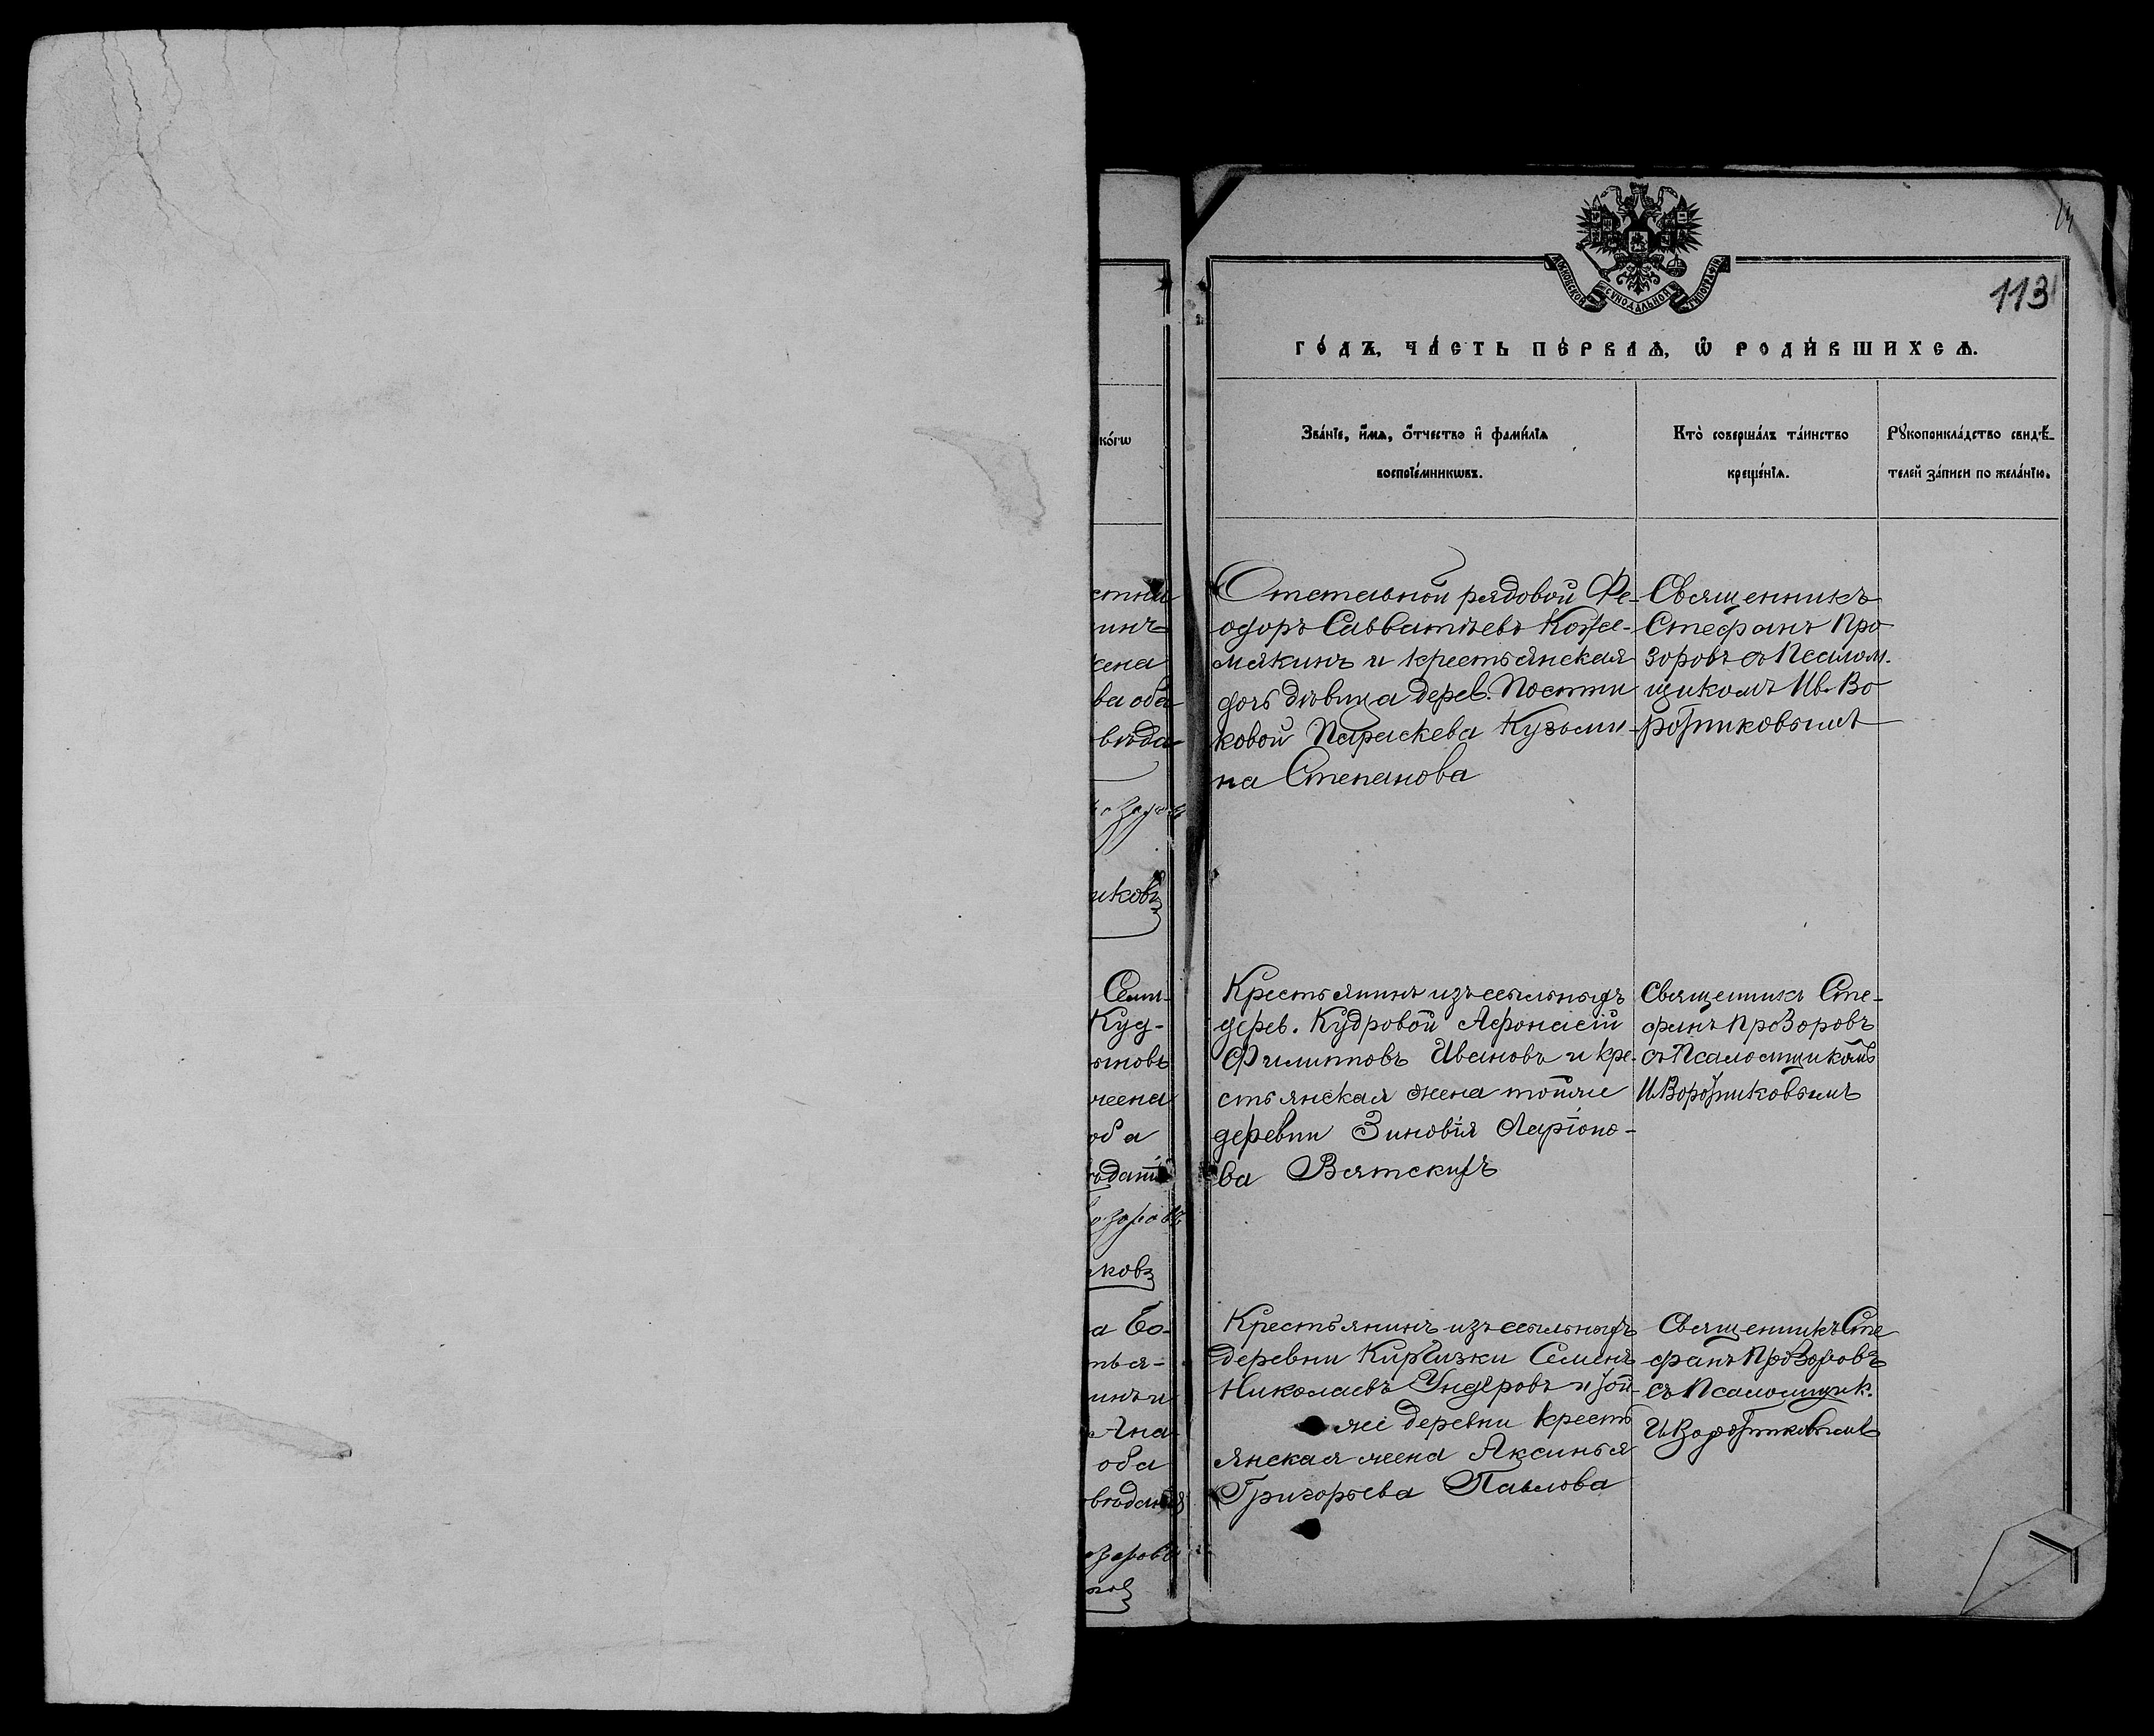 МОСКОВСКОЙ СѴНОДАЛЬНОЙ ТИПОГРАФІИ
113
ГО́ДЪ, ЧА́СТЬ ПЕ́РВАѦ, Ѡ҆ РОДИ́ВШИХСѦ.
ко́гѡ
Зва́нїе, и҆́мѧ, ѻ҆́тчество и҆ фами́лїѧ
воспрїе́мникѡвъ.
Кто̀ соверша́лъ та́инство
креще́нїѧ.
Рꙋкоприкла́дство свидѣ́-
телей за́писи по жела́нїю.
инъ
жена
ва оба
вѣда-
иковъ
Отставной рядовой Ѳе-
одоръ Савватѣевъ Коже-
мякинъ и крестьянская
дочь дѣвица дерев. Постни
ковой Параскева Кузьми-
на Степанова
Священникъ
Стефанъ Про
зоровъ съ Псалом-
щикомъ Ив. Во
ротниковымъ
Семи-
Куд-
женa
оба
озоровъ
ковъ
Крестьянинъ изъ ссыльныхъ
дерев. Кудровой Афонасій
Филипповъ Ивановъ и кре-
стьянская жена тойже
деревни Зиновія Ларіоно-
ва Вятскихъ
Священникъ Сте-
фанъ Прозоровъ
съ Псаломщикомъ
И. Воротниковымъ
а Бо-
инъ и
Ана-
оба
озоровъ
Крестьянинъ изъ ссыльныхъ
деревни Киргизки Семенъ
Николаевъ Ундеровъ и той-
же деревни кресть
янская жена Аксинья
Григорьева Павлова
Священникъ Сте
фанъ Прозоровъ
съ Псаломщик.
И. Воротниковымъ